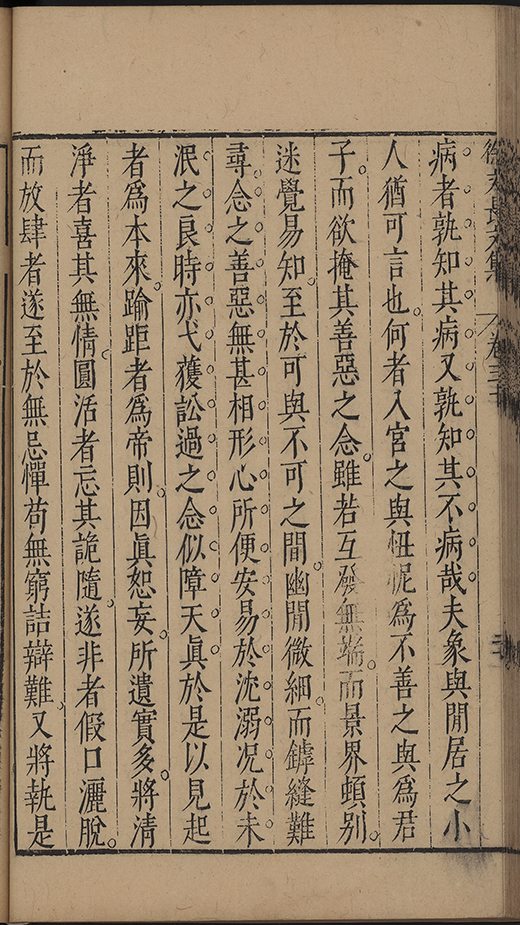 徐文長文集 卷三十
病者孰知其病又孰知其不病哉夫象與閒居之小
人猶可言也何者入宮之與忸怩爲不善之與爲君
子而欲掩其善惡之念雖若互發無端而景界頓别
迷覺易知至於可與不可之間幽閒微細而罅縫難
尋念之善惡無甚相形心所便安易於沈溺况於未
泯之良時亦弋獲訟過之念似障天眞於是以見起
者爲本來踰距者爲帝則因眞恕妄所遺實多將清
淨者喜其無情圓活者忘其詭隨遂非者假口灑脫
而放肆者遂至於無忌憚苟無窮詰辯難又將執是